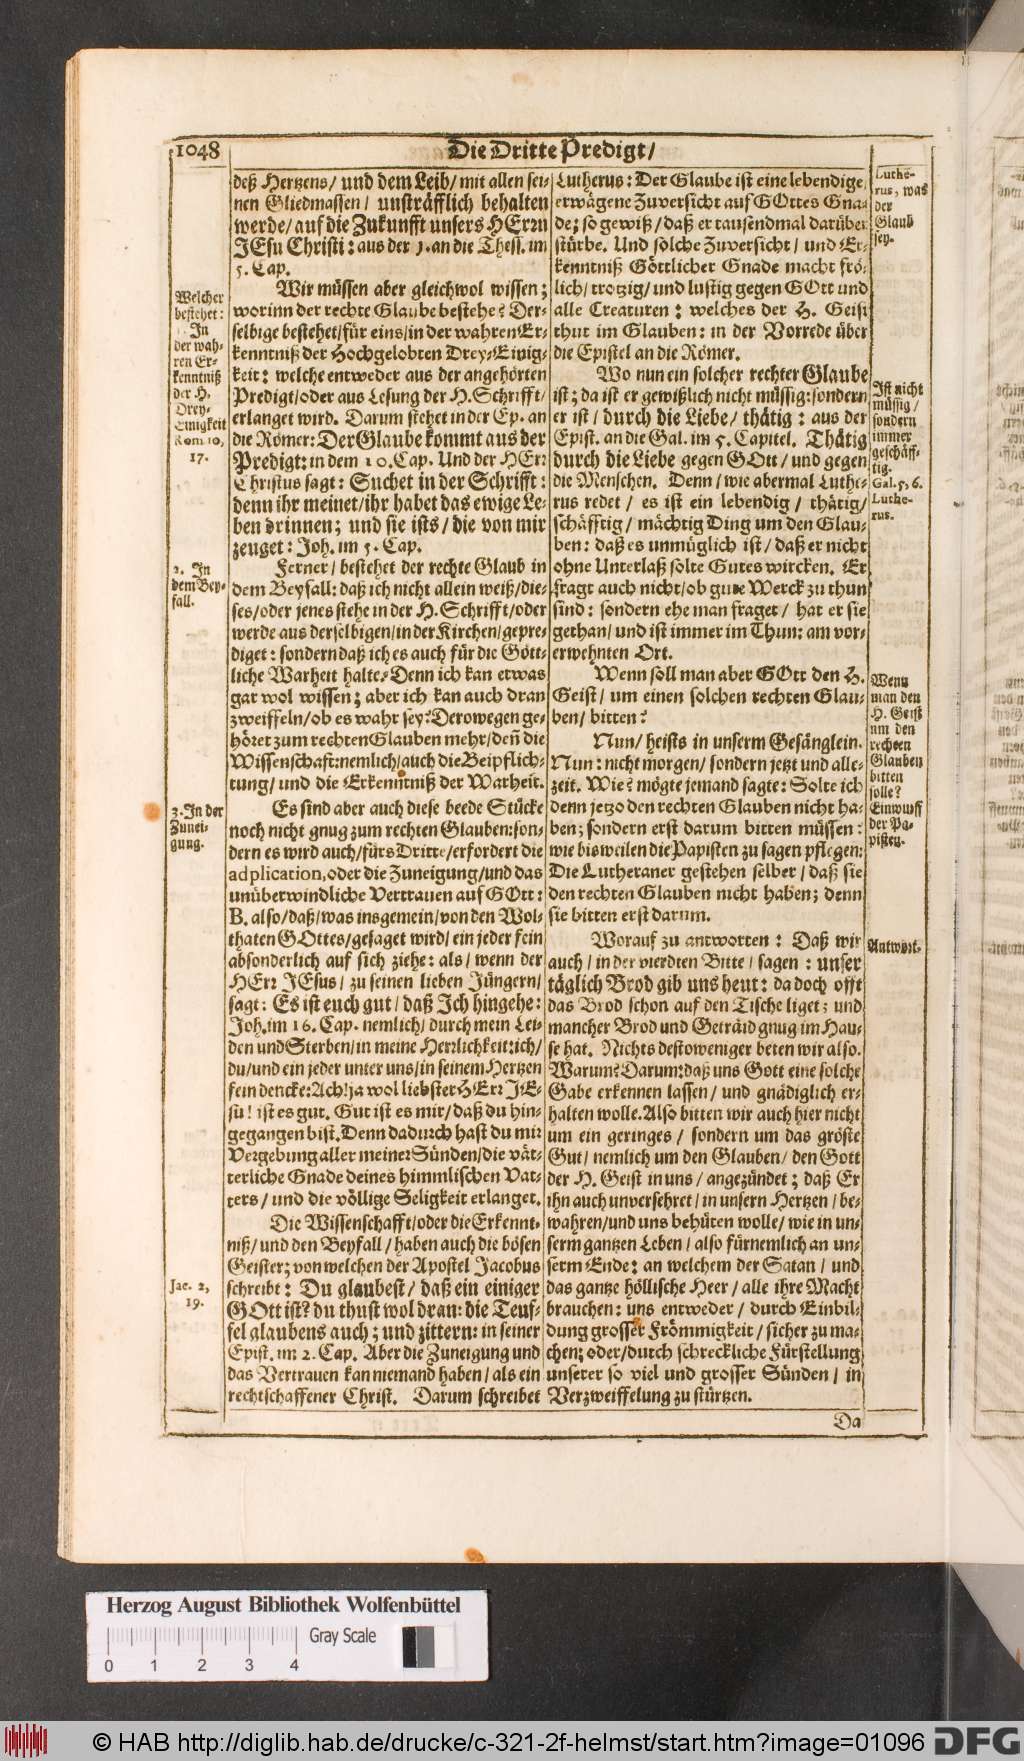 1048
Die Dritte Predigt/
deß Hertzens/ und dem Leib/ mit allen sei-
nen Gliedmassen/ unsträfflich behalten
werde/ auf die Zukunfft unsers HErrn
JEsu Christi: aus der 1. an die Thess. im
5. Cap.
Wir müssen aber gleichwol wissen;
worinn der rechte Glaube bestehe? Der-
selbige bestehet/ für eins/ in der wahren Er-
kenntniß der Hochgelobten Drey-Einig-
keit: welche entweder aus der angehörten
Predigt/ oder aus Lesung der H. Schrifft/
erlanget wird. Darum stehet in der Ep. an
die Römer: Der Glaube kommt aus der
Predigt: in dem 10. Cap. Und der HErr
Christus sagt: Suchet in der Schrifft:
denn ihr meinet/ ihr habet das ewige Le-
ben drinnen; und sie ists/ die von mir
zeuget: Joh. im 5. Cap.
Ferner/ bestehet der rechte Glaub in
dem Beyfall: daß ich nicht allein weiß/ die-
ses/ oder jenes stehe in der H. Schrifft/ oder
werde aus derselbigen/ in der Kirchen/ gepre-
diget: sondern daß ich es auch für die Gött-
liche Warheit halte. Denn ich kan etwas
gar wol wissen; aber ich kan auch dran
zweiffeln/ ob es wahr sey? Derowegen ge-
höret zum rechten Glauben mehr/ deñ die
Wissenschaft: nemlich/ auch die Beipflich-
tung/ und die Erkenntniß der Warheit.
Es sind aber auch diese beede Stücke
noch nicht gnug zum rechten Glauben: son-
dern es wird auch/ fürs Dritte/ erfordert die
adplication, oder die Zuneigung/ und das
unüberwindliche Vertrauen auf GOtt:
B. also/ daß/ was insgemein/ von den Wol-
thaten GOttes/ gesaget wird/ ein jeder fein
absonderlich auf sich ziehe: als/ wenn der
HErr JEsus/ zu seinen lieben Jüngern/
sagt: Es ist euch gut/ daß Ich hingehe:
Joh. im 16. Cap. nemlich/ durch mein Lei-
den und Sterben/ in meine Herrlichkeit: ich/
du/ und ein jeder unter uns/ in seinem Hertzen
fein dencke: Ach! ja wol liebster HErr JE-
su! ist es gut. Gut ist es mir/ daß du hin-
gegangen bist. Denn dadurch hast du mir
Vergebung aller meiner Sünden/ die vät-
terliche Gnade deines himmlischen Vat-
ters/ und die völlige Seligkeit erlanget.
Die Wissenschafft/ oder die Erkennt-
niß/ und den Beyfall/ haben auch die bösen
Geister; von welchen der Apostel Jacobus
schreibt: Du glaubest/ daß ein einiger
GOtt ist? du thust wol dran: die Teuf-
fel glaubens auch; und zittern: in seiner
Epist. im 2. Cap. Aber die Zuneigung und
das Vertrauen kan niemand haben/ als ein
rechtschaffener Christ. Darum schreibet
Welcher
bestehet:
1. In
der wah-
ren Er-
kenntniß
der H.
Drey-
Einigkeit
Rom. 10,
17.
2. In
dem Bey-
fall.
3. In der
Zunei-
gung.
Jac. 2,
19.
Lutherus: Der Glaube ist eine lebendige/
erwägene Zuversicht auf GOttes Gna-
de; so gewiß/ daß er tausendmal darüber
stürbe. Und solche Zuversicht/ und Er-
kenntniß Göttlicher Gnade macht frö-
lich/ trotzig/ und lustig gegen GOtt und
alle Creaturen: welches der H. Geist
thut im Glauben: in der Vorrede über
die Epistel an die Römer.
Wo nun ein solcher rechter Glaube
ist; da ist er gewißlich nicht müssig: sondern
er ist/ durch die Liebe/ thätig: aus der
Epist. an die Gal. im 5. Capitel. Thätig
durch die Liebe gegen GOtt/ und gegen
die Menschen. Denn/ wie abermal Luthe-
rus redet/ es ist ein lebendig/ thätig/
schäfftig/ mächtig Ding um den Glau-
ben: daß es unmüglich ist/ daß er nicht
ohne Unterlaß solte Gutes wircken. Er
fragt auch nicht/ ob gute Werck zu thun
sind: sondern ehe man fraget/ hat er sie
gethan/ und ist immer im Thun: am vor-
erwehnten Ort.
Wenn soll man aber GOtt den H.
Geist/ um einen solchen rechten Glau-
ben/ bitten?
Nun/ heists in unserm Gesänglein.
Nun: nicht morgen/ sondern jetzt und alle-
zeit. Wie? mögte jemand sagte: Solte ich
denn jetzo den rechten Glauben nicht ha-
ben; sondern erst darum bitten müssen:
wie bisweilen die Papisten zu sagen pflegen:
Die Lutheraner gestehen selber/ daß sie
den rechten Glauben nicht haben; denn
sie bitten erst darum.
Worauf zu antworten: Daß wir
auch/ in der vierdten Bitte/ sagen: unser
täglich Brod gib uns heut: da doch offt
das Brod schon auf den Tische liget; und
mancher Brod und Geträid gnug im Hau-
se hat. Nichts destoweniger beten wir also.
Warum? Darum: daß uns Gott eine solche
Gabe erkennen lassen/ und gnädiglich er-
halten wolle. Also bitten wir auch hier nicht
um ein geringes/ sondern um das gröste
Gut/ nemlich um den Glauben/ den Gott
der H. Geist in uns/ angezündet; daß Er
ihn auch unversehret/ in unsern Hertzen/ be-
wahren/ und uns behüten wolle/ wie in un-
serm gantzen Leben/ also fürnemlich an un-
serm Ende: an welchem der Satan/ und
das gantze höllische Heer/ alle ihre Macht
brauchen: uns entweder/ durch Einbil-
dung grosser Frömmigkeit/ sicher zu ma-
chen; oder/ durch schreckliche Fürstellung
unserer so viel und grosser Sünden/ in
Verzweiffelung zu stürtzen.
Da
Luthe-
rus, was
der
Glaub
sey.
Ist nicht
müssig/
sondern
immer
geschäff-
tig.
Gal. 5, 6.
Luthe-
rus.
Wenn
man den
H. Geist
um den
rechten
Glauben
bitten
solle?
Einwurff
der Pa-
pisten.
Antwort.
Herzog August Bibliothek Wolfenbüttel
Gray Scale
0 1 2 3 4
© HAB http://diglib.hab.de/drucke/c-321-2f-helmst/start.htm?image=01096
DFG